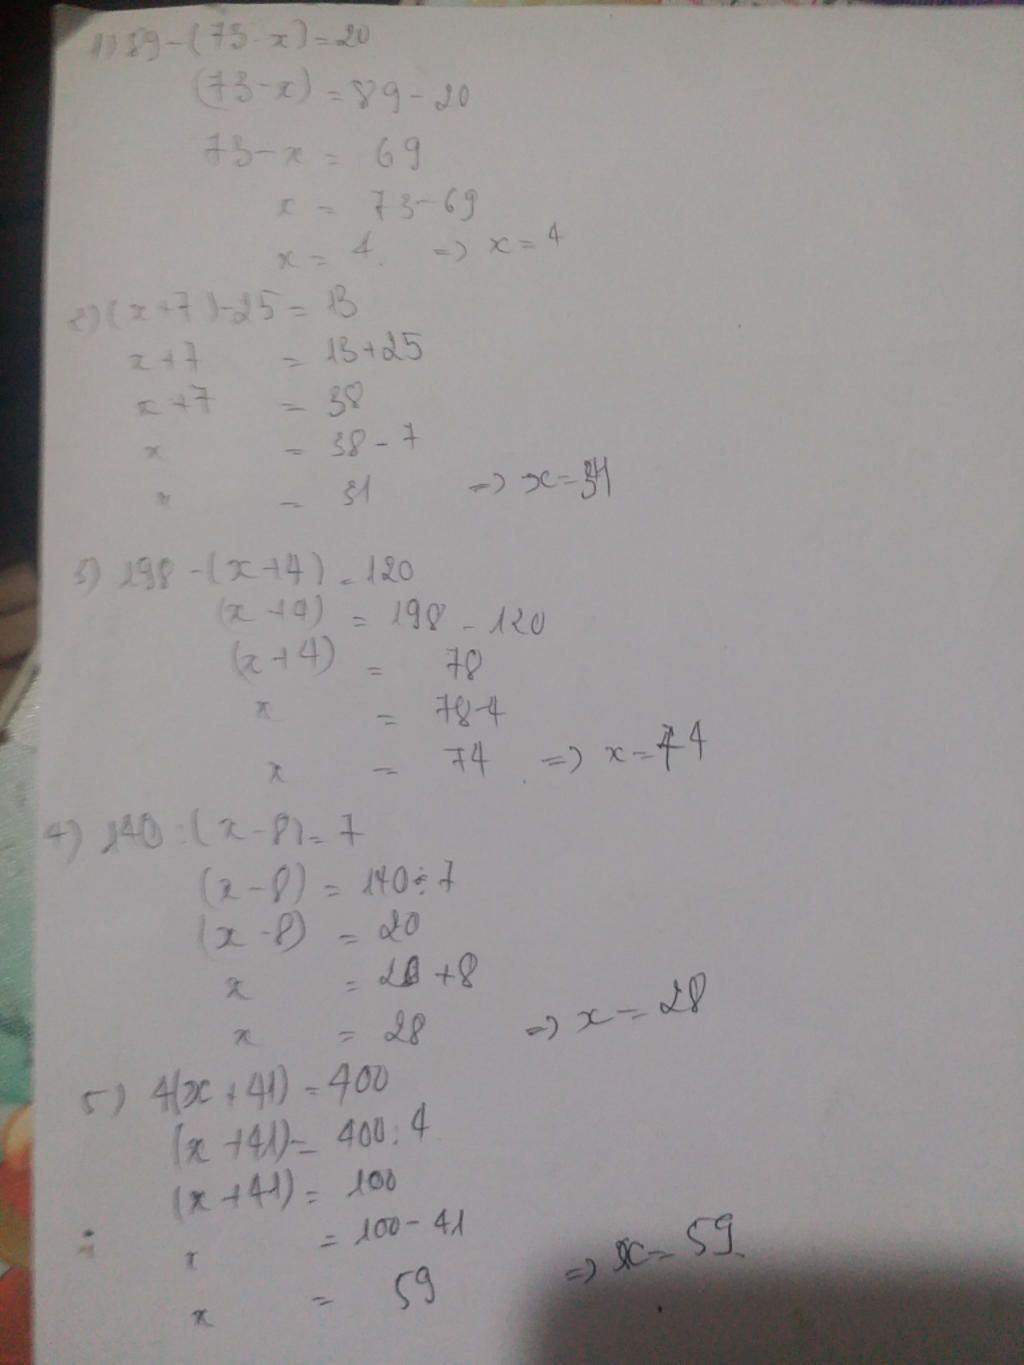 1) 89-(73-x)=20
(73-x) = 89-20
73-x = 69
x = 73-69
x = 4. => x = 4
2) (x+7)-25 = 13
x+7 = 13+25
x+7 = 38
x = 38-7
x = 31 => x = 31
3) 198-(x+4) = 120
(x+4) = 198-120
(x+4) = 78
x = 78-4
x = 74 => x = 74
4) 140:(x-8) = 7
(x-8) = 140÷7
(x-8) = 20
x = 20+8
x = 28 => x = 28
5) 4(x+41) = 400
(x+41) = 400:4
(x+41) = 100
x = 100-41
x = 59 => x = 59